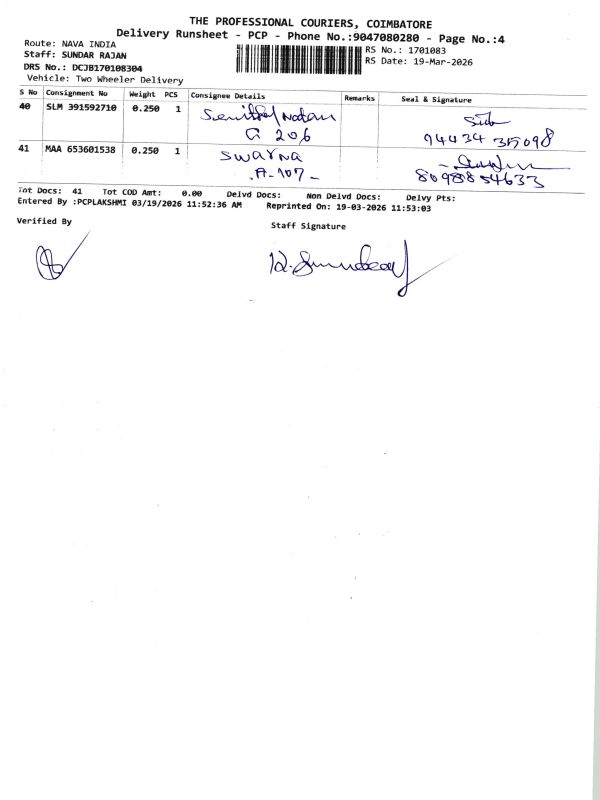 THE PROFESSIONAL COURIERS, COIMBATORE
Delivery Runsheet - PCP - Phone No.:9047080280 - Page No.:4
Route: NAVA INDIA
Staff: SUNDAR RAJAN
DRS No.: DCJB170108304
Vehicle: Two Wheeler Delivery
RS No.: 1701083
RS Date: 19-Mar-2026
S No Consignment No Weight PCS Consignee Details Remarks Seal & Signature
40 SLM 391592710 0.250 1
G 206
94434 315098
41 MAA 653601538 0.250 1 Swarna
A-107-
8098854633
Tot Docs: 41 Tot COD Amt: 0.00 Delvd Docs: Non Delvd Docs: Delvy Pts:
Entered By :PCPLAKSHMI 03/19/2026 11:52:36 AM Reprinted On: 19-03-2026 11:53:03
Verified By
Staff Signature